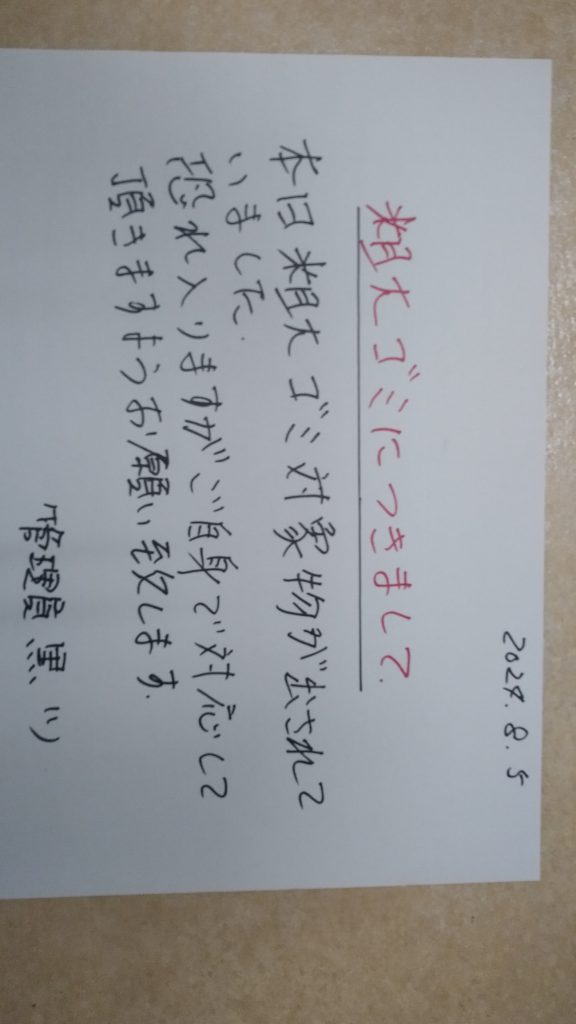 2024.8.5
粗大ゴミにつきまして.
本日粗大ゴミ対象物が出されて
いました.
恐れ入りますがご自身で対応して
頂きますようお願い致します.
管理員 黒